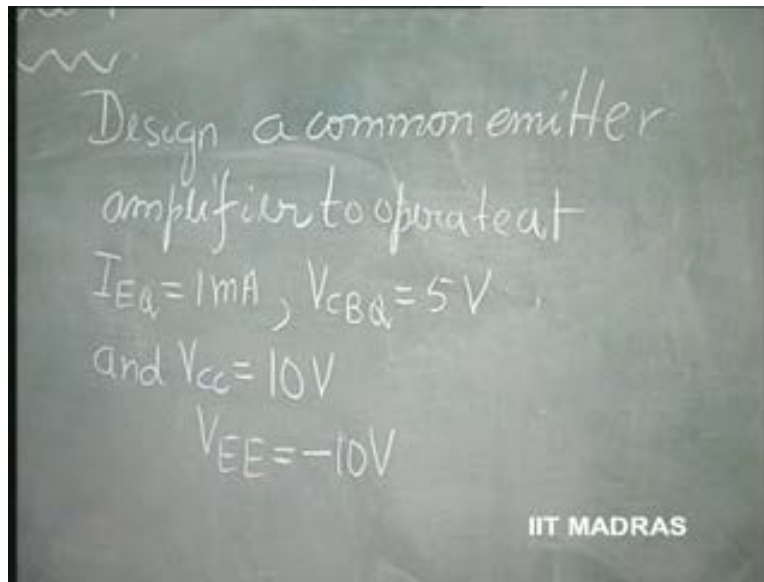 Design a common emitter
amplifier to operate at
I_EQ = 1mA, V_CBQ = 5V
and V_CC = 10V
V_EE = -10V
IIT MADRAS